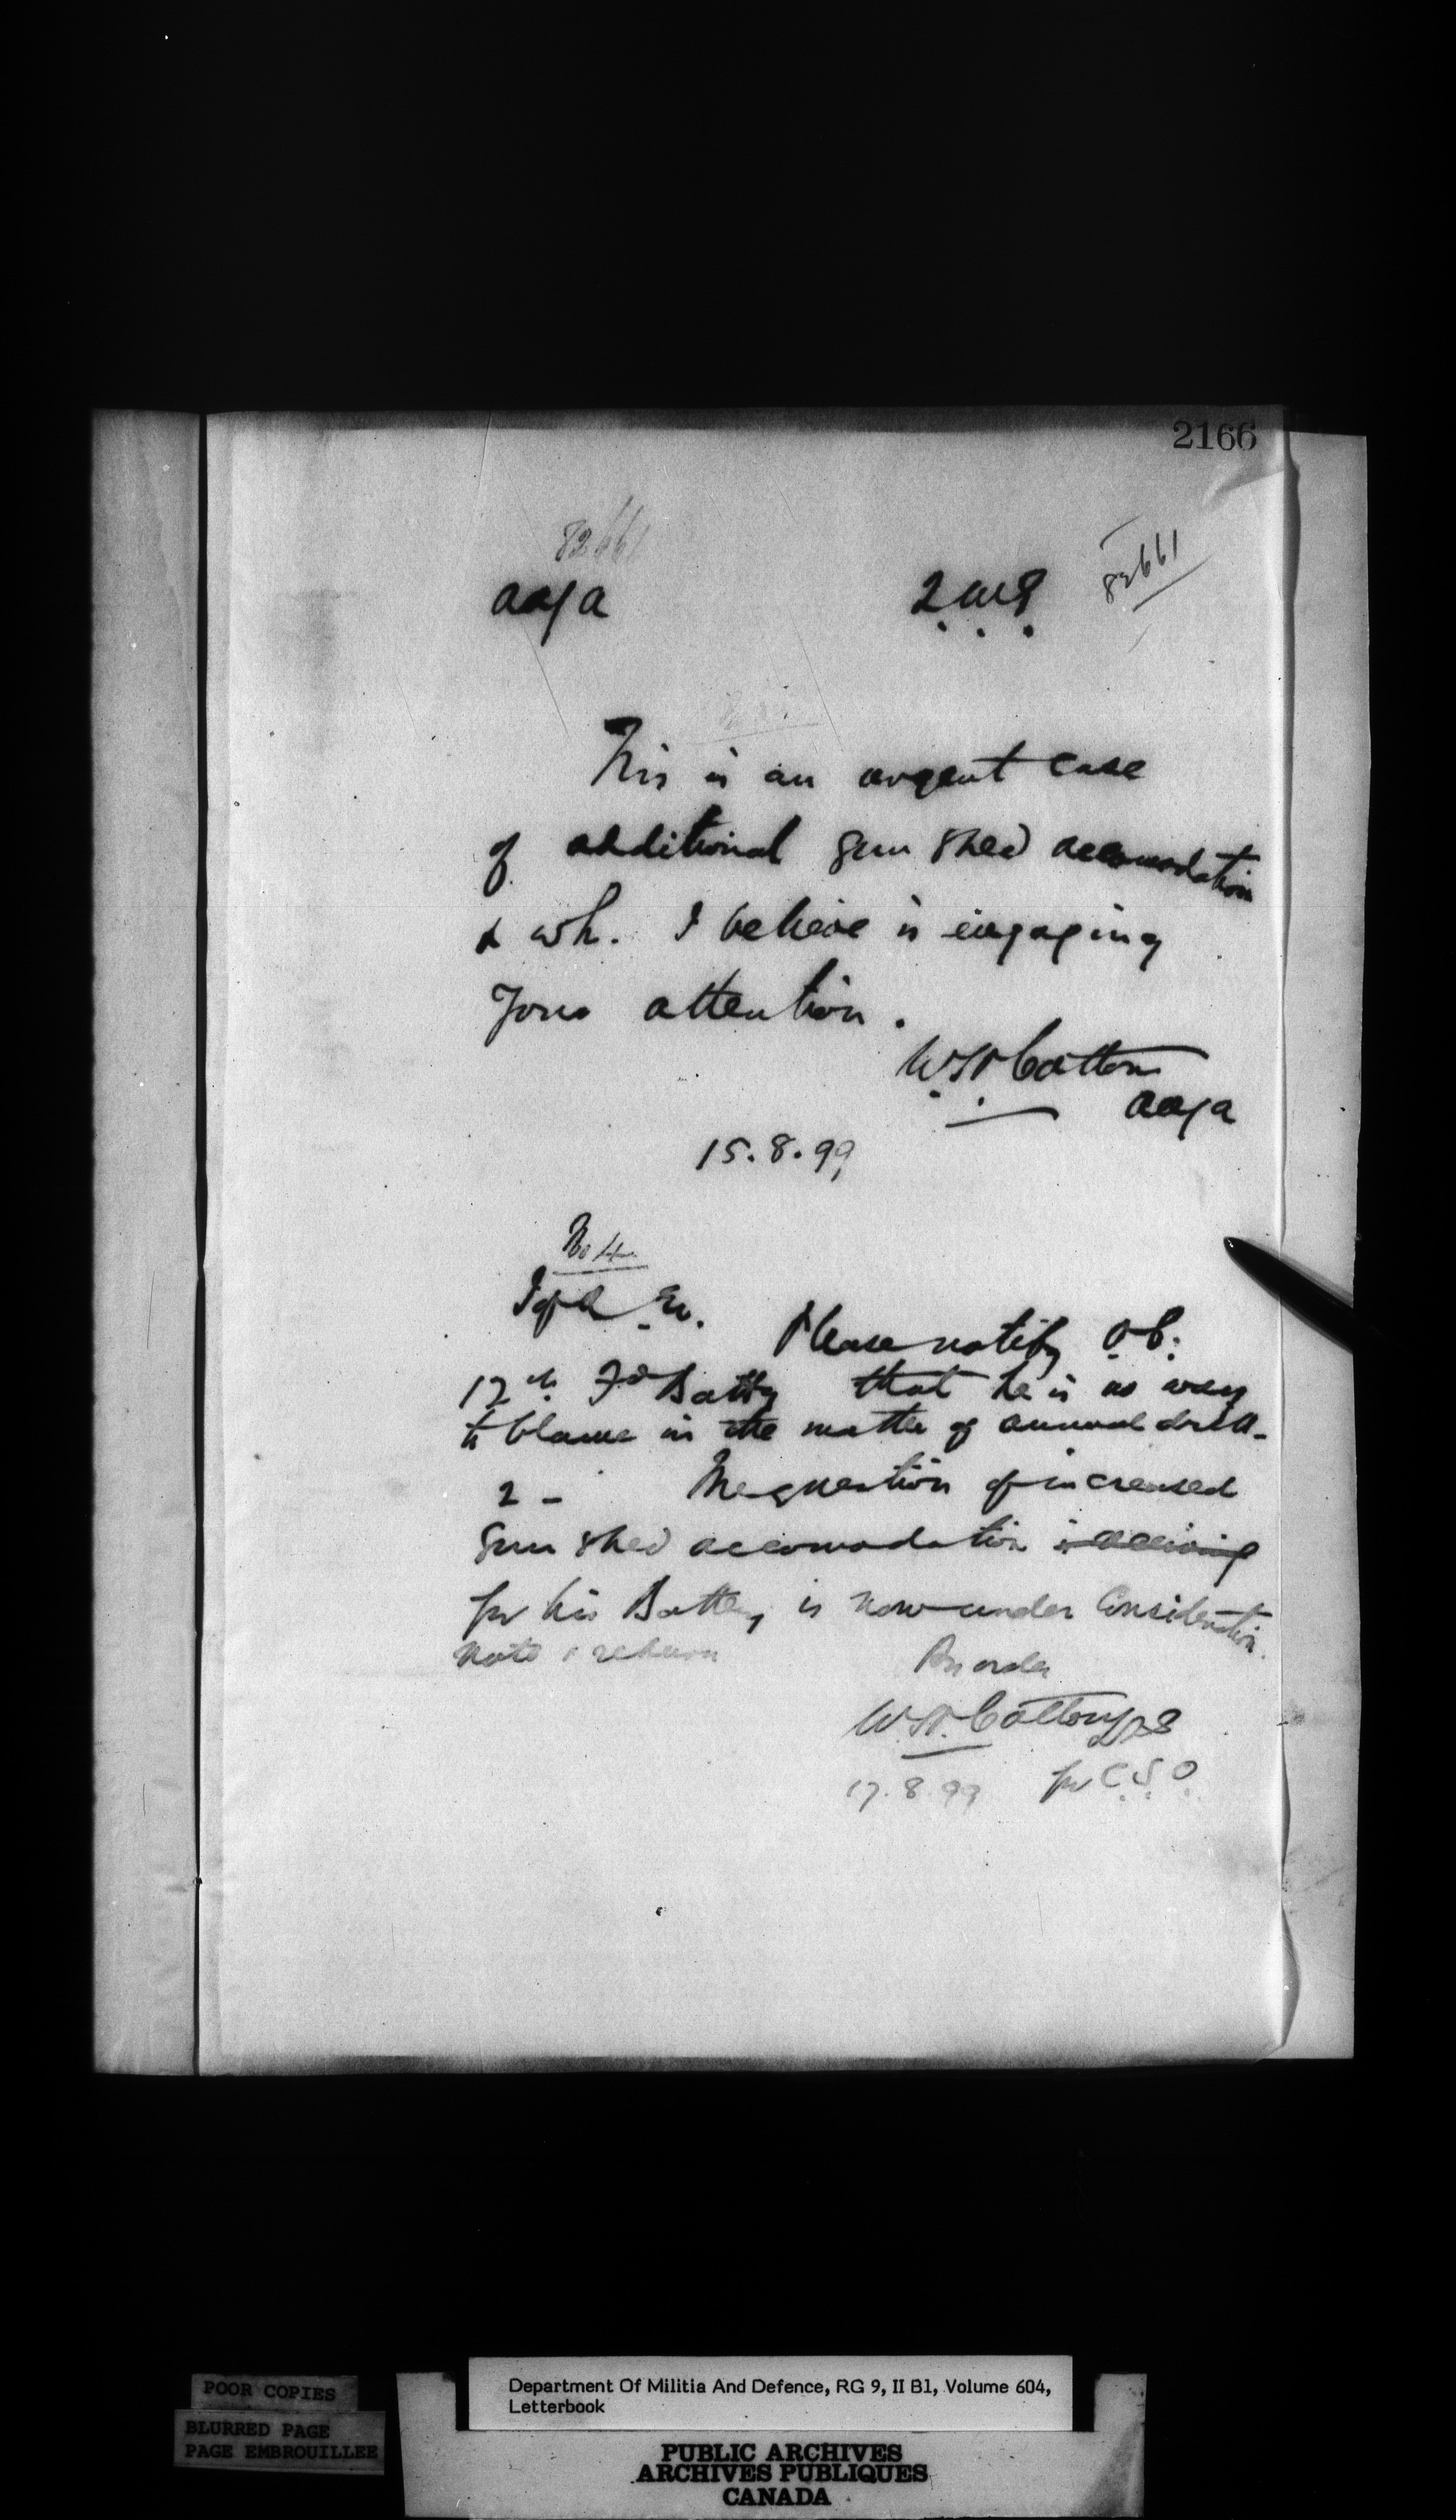 2166
82661
82661
aaga
2 M G
This is an urgent case
of additional gun shed accomodation
& wh. I believe is engaging
your attention.
W. H. Cotton
aaga
15.8.99
No 4
Please notify O.C.
12th Fd Batty that he is no way
to blame in the matter of annual drill.
2 - The question of increased
gun shed accomodation
for his Battery is now under Consideration.
Note & return
By order
W. H. Cotton
17.8.99 for C.S.O.
POOR COPIES
BLURRED PAGE
PAGE EMBROUILLEE
Department Of Militia And Defence, RG 9, II B1, Volume 604,
Letterbook
PUBLIC ARCHIVES
ARCHIVES PUBLIQUES
CANADA